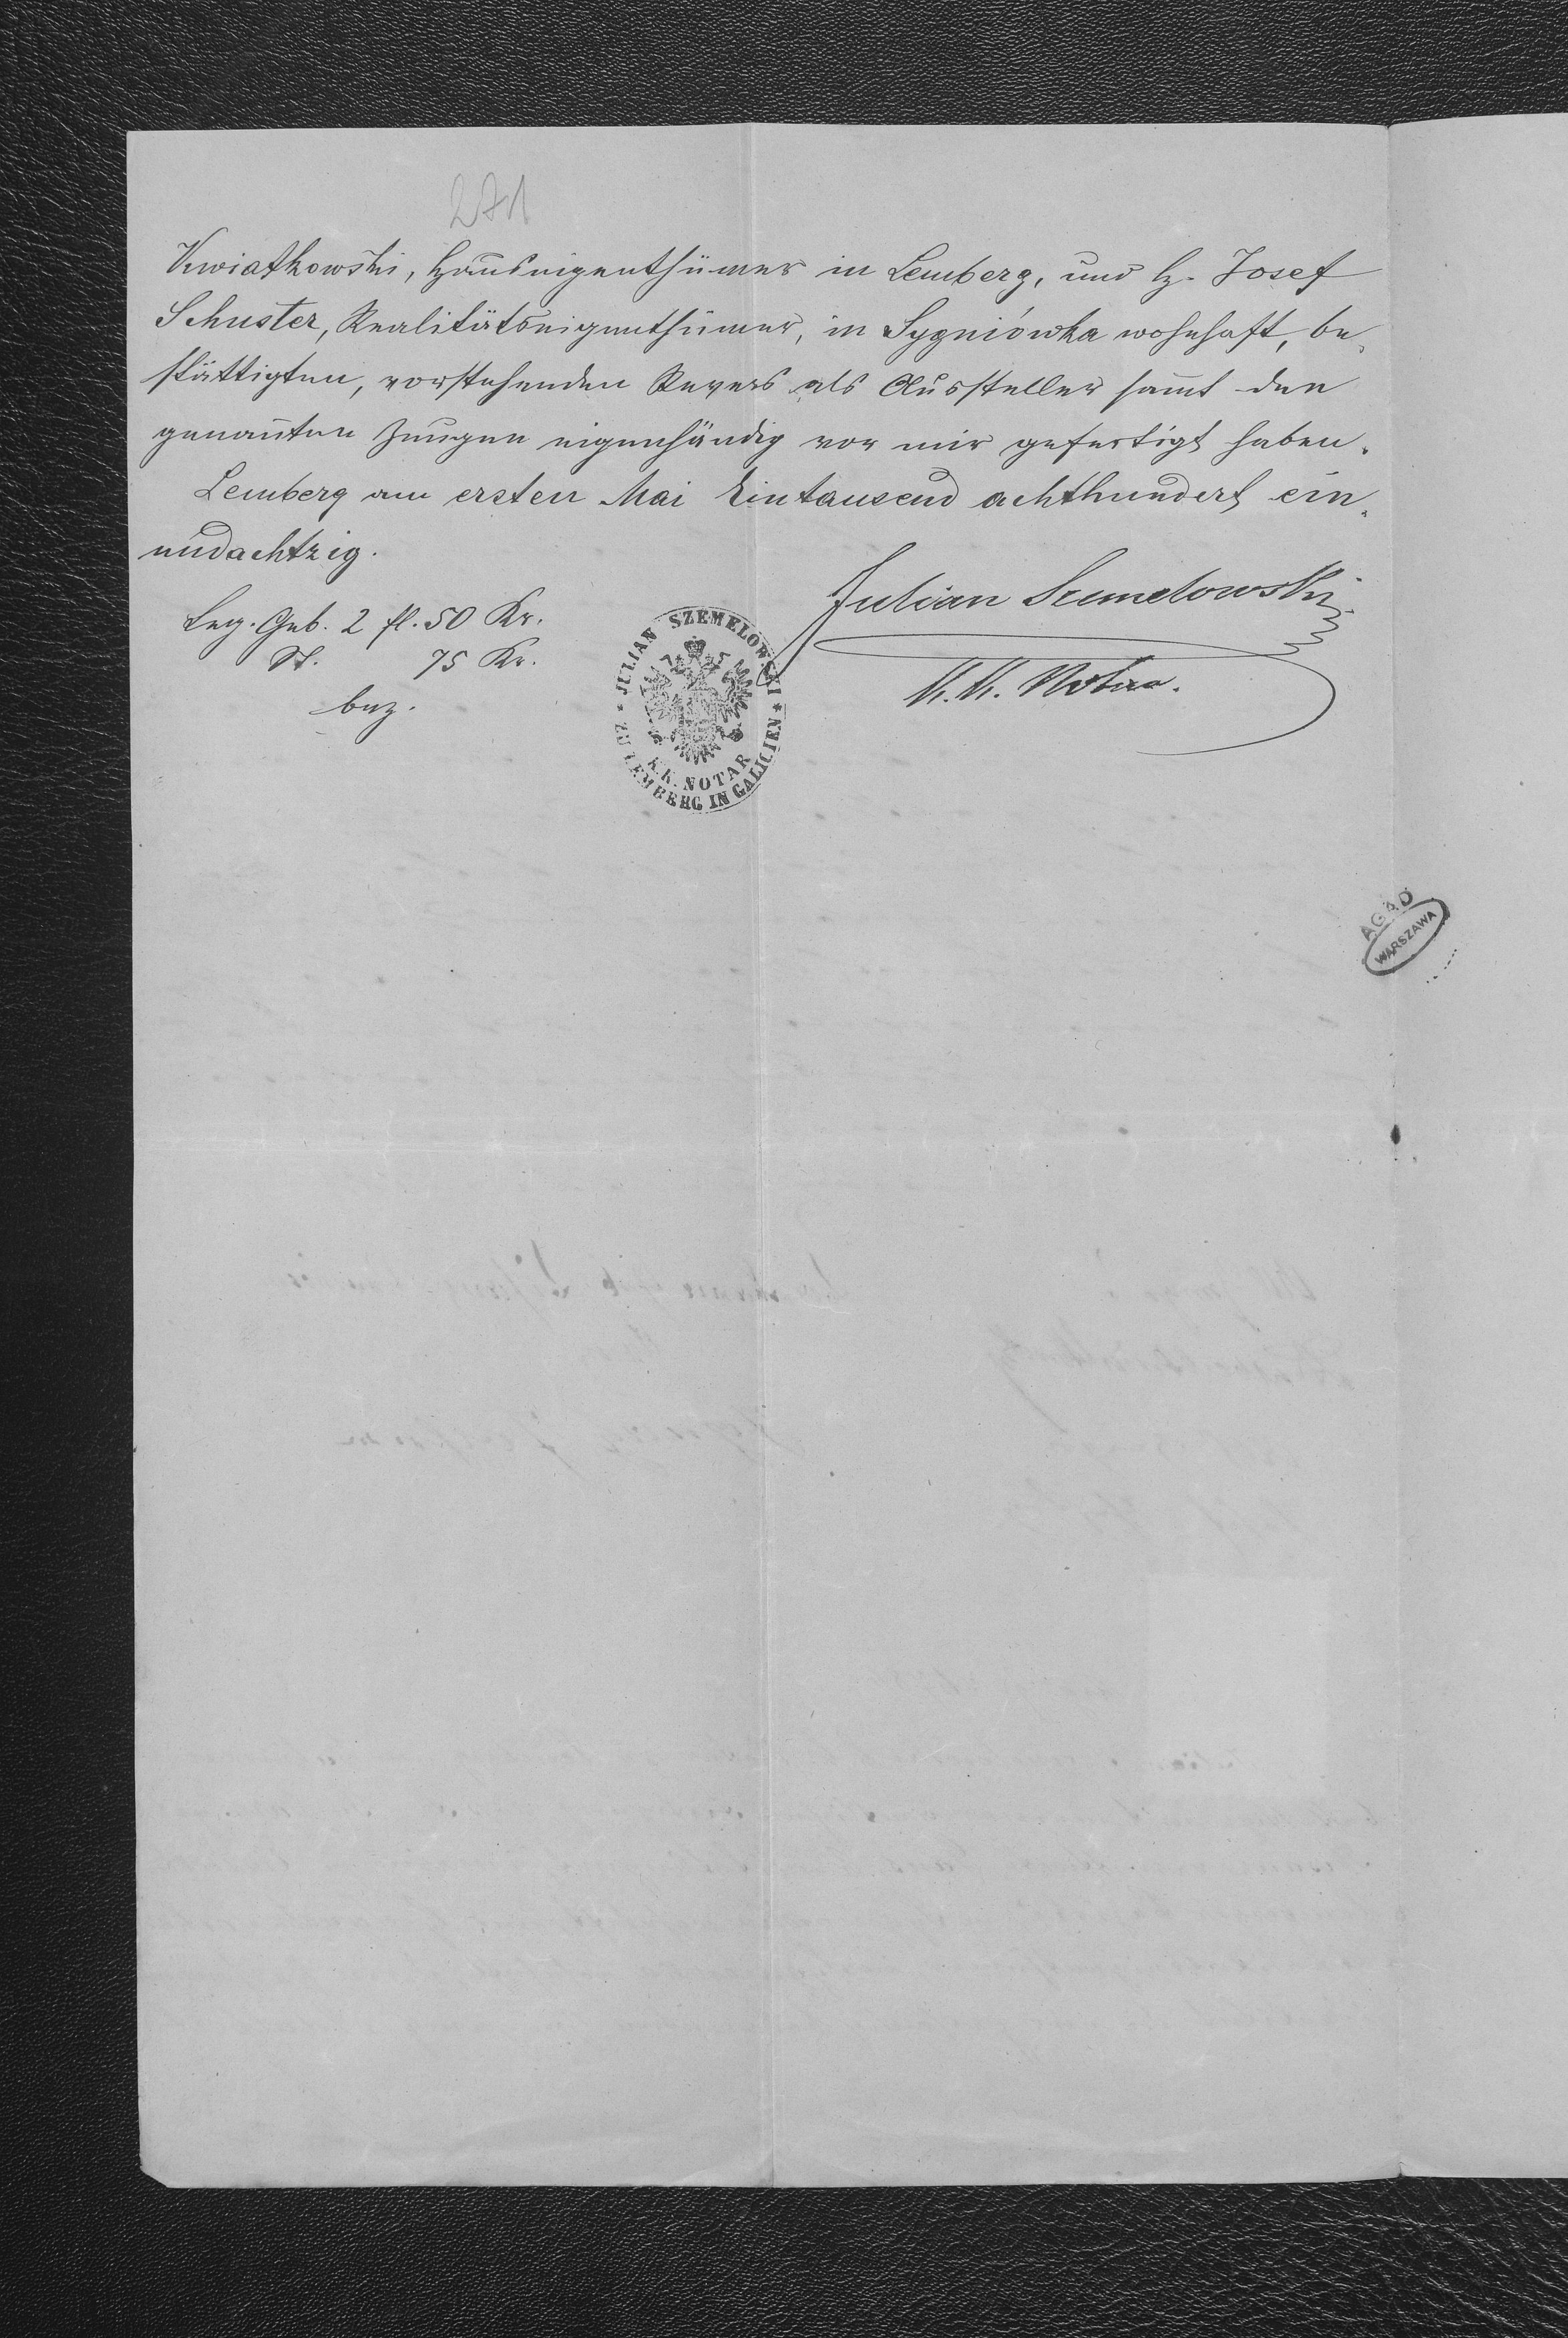 271
Kwiatkowski, Hauseigenthümer in Lemberg, und H. Josef
Schuster, Realitätseigenthümer, in Sygniówka wohnhaft, be-
stättigten, vorstehenden Revers als Aussteller sammt den
genannten Zeugen eigenhändig vor mir gefertigt haben.
Lemberg am ersten Mai Eintausend achthundert ein-
undachtzig.
Leg. Geb. 2 fl. 50 Kr.
St. 75 Kr.
bez.
Julian Szemelowski
K. K. Notar.
JULIAN SZEMELOWSKI
K.K. NOTAR
ZU LEMBERG IN GALICIEN
AGAD
WARSZAWA